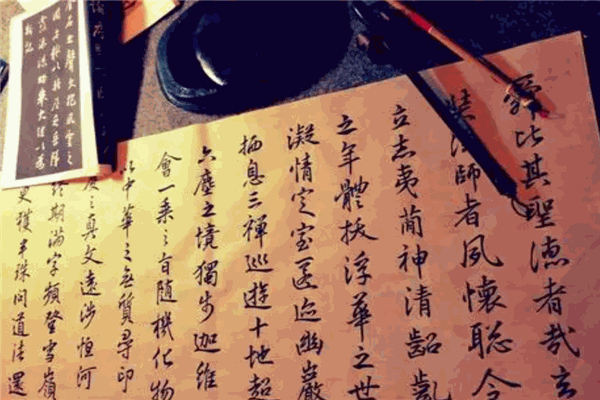 孰比其聖德者哉玄
奘法師者夙懷聰令
立志夷簡神清齠齔
之年體拔浮華之世
凝情定室匿迹幽巖
栖息三禪巡遊十地超
六塵之境獨步迦維
會一乘之旨隨機化物
以中華之無質尋印
度之真文遠涉恒河
終期滿字頻登雪嶺
更獲半珠問道法還